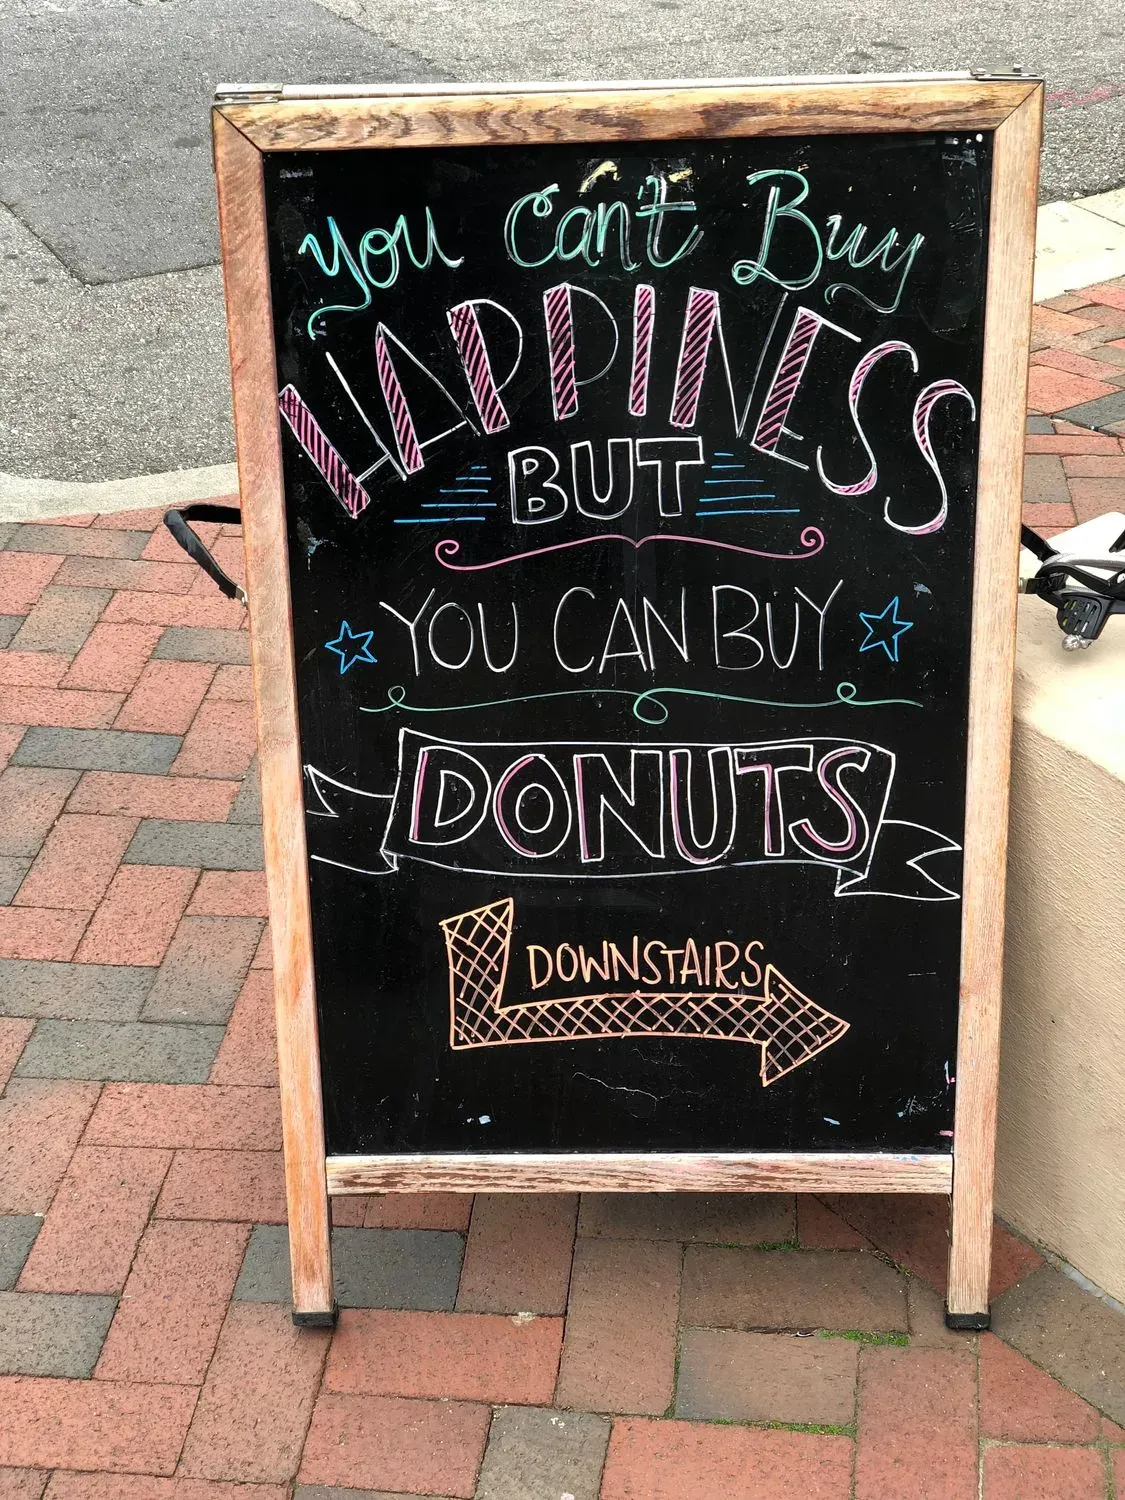 You Can't Buy
HAPPINESS
BUT
YOU CAN BUY
DONUTS
DOWNSTAIRS